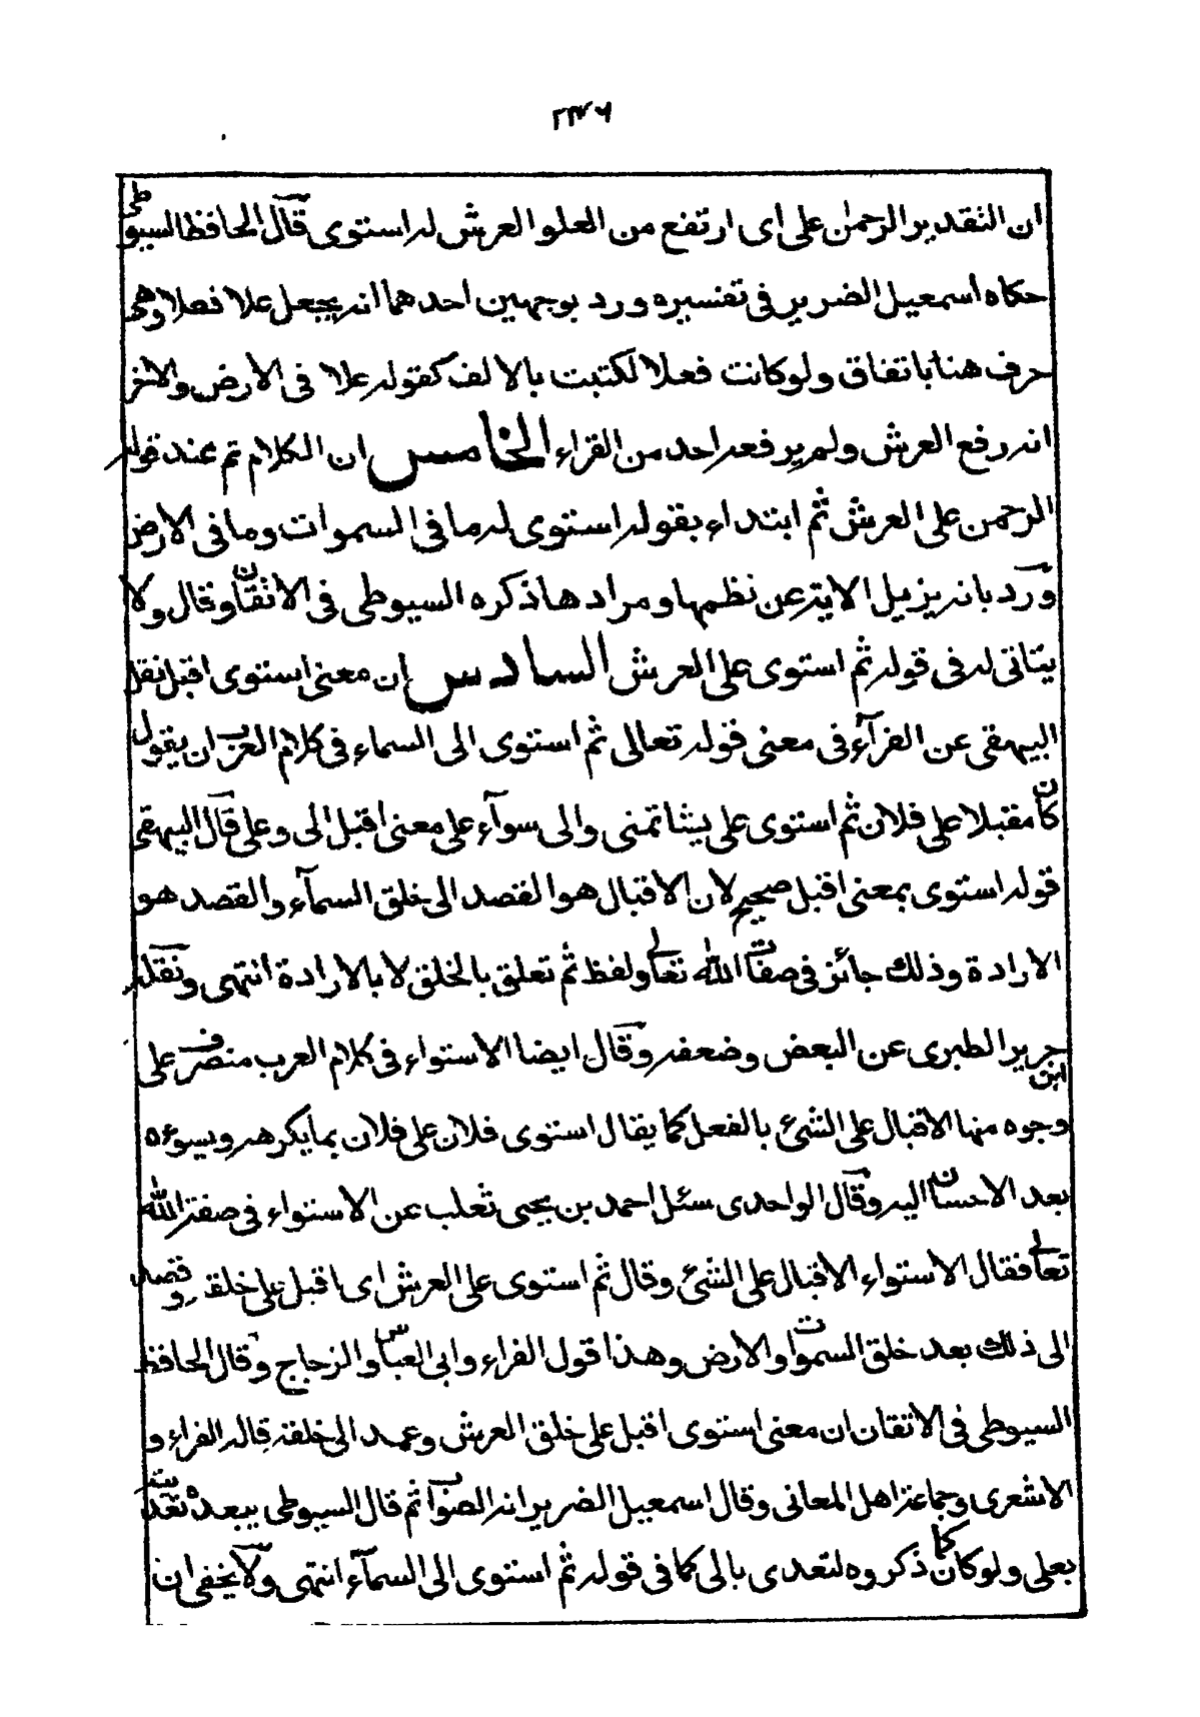 ٢٣٦
ان التقدير الرحمٰن على اى ارتفع من العلو والعرش له استوى قال الحافظ السيوطى
حكاه اسمعيل الضرير فى تفسيره ورد بوجهين احدهما انه يجعل علا فعلا وهى
حرف هنا باتفاق ولو كانت فعلا لكتبت بالالف كقوله علا فى الارض والاخر
انه رفع العرش ولم يرفعه احد من القراء الخامس ان الكلام تم عند قوله
الرحمن على العرش ثم ابتداء بقوله استوى له ما فى السموات وما فى الارض
ورد بانه يزيل الاية عن نظمها ومرادها ذكره السيوطى فى الاتقان وقال ولا
يتاتى له فى قوله ثم استوى على العرش السادس ان معنى استوى اقبل نقل
البيهقى عن الفرآء فى معنى قوله تعالى ثم استوى الى السماء فى كلام العرب ان يقول
كان مقبلا على فلان ثم استوى على يشاتمنى والى سوآء على معنى اقبل الى وعلى قال البيهقى
قوله استوى بمعنى اقبل صحيح لان الاقبال هو القصد الى خلق السمآء والقصد هو
الارادة وذلك جائز فى صفات الله تعالى ولفظ ثم تعلق بالخلق لا بالارادة انتهى ونقله
ابن جرير الطبرى عن البعض وضعفه وقال ايضا الاستواء فى كلام العرب منصرف على
وجوه منها الاقبال على الشئ بالفعل كما يقال استوى فلان على فلان بما يكرهه ويسوءه
بعد الاحسان اليه وقال الواحدى سئل احمد بن يحيى ثعلب عن الاستواء فى صفة الله
تعالى فقال الاستواء الاقبال على الشئ وقال ثم استوى على العرش اى اقبل على خلقه وقصد
الى ذلك بعد خلق السموات والارض وهذا قول الفراء وابى العباس والزجاج وقال الحافظ
السيوطى فى الاتقان ان معنى استوى اقبل على خلق العرش وعمد الى خلقه قاله الفراء و
الاشعرى وجماعة اهل المعانى وقال اسمعيل الضرير انه الصواب ثم قال السيوطى يبعده تعديته
بعلى ولو كان كما ذكروه لتعدى بالى كما فى قوله ثم استوى الى السمآء انتهى ولا يخفى ان